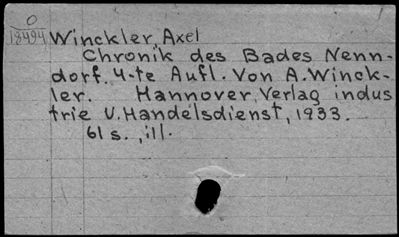 O
18494 Winckler, Axel
Chronik des Bades Nenn-
dorf. 4-te Aufl. Von A. Winck-
ler. Hannover, Verlag indus
trie U. Handelsdienst, 1933.
61 s., ill.